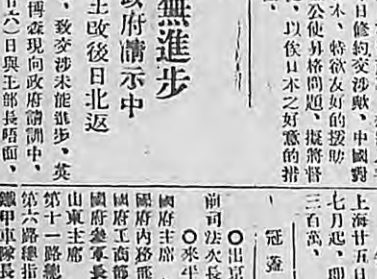 日修約交涉歟、中國對
木、特欲友好的援助
公使昇格問題、擬將督
以俟日本之好意的措
無進步
政府請示中
王改後日北返
致交涉未能進步、英
博森現向政府請訓中、
廿六）日與王部長晤面、
上海廿五日
七月起、即
三百萬、
冠蓋
〇出京
前司法次長
〇來平
國府主席
國府內務部
國府工商部
國府參軍長
山東主席
第十一路總
第六路總指
鐵甲車隊長